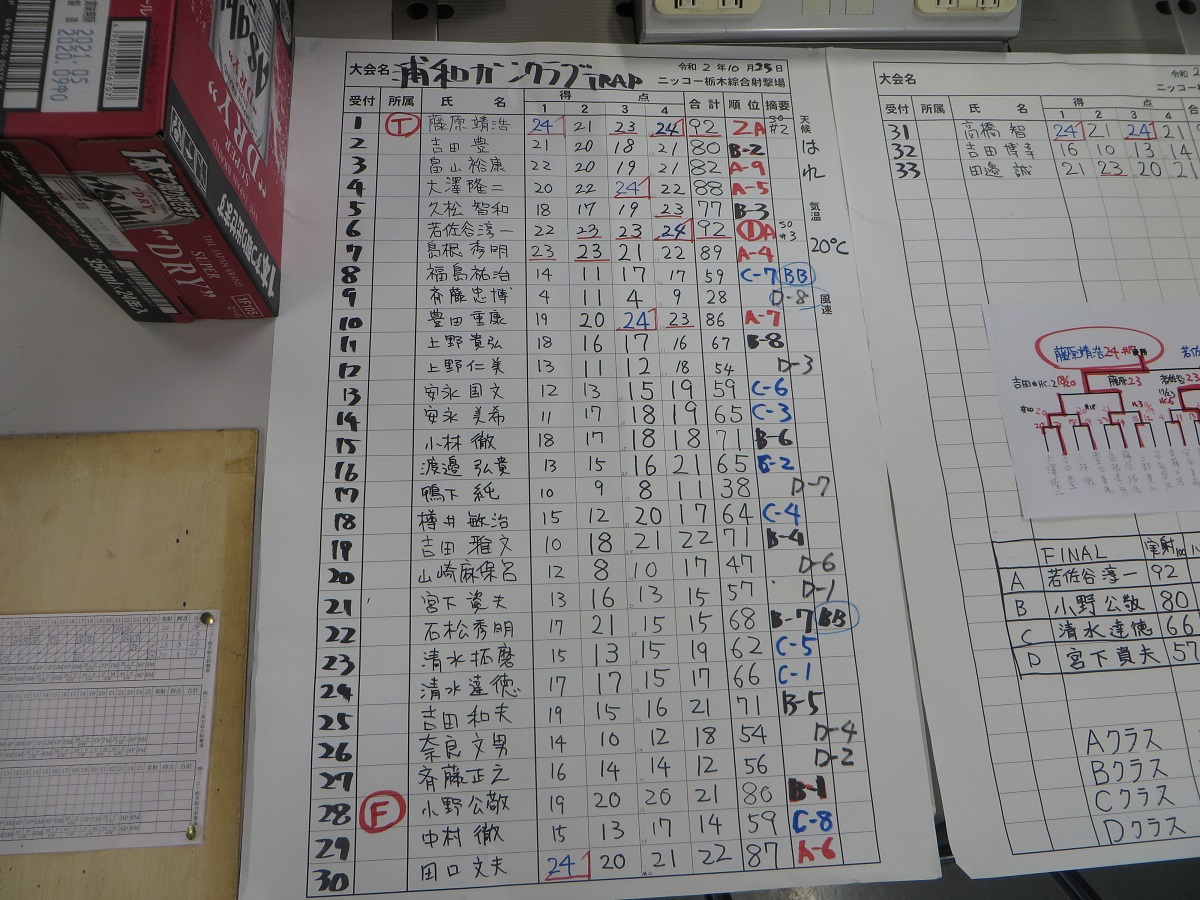 2021.05
2020.09
Asahi
SUPER
"DRY"
大会名 浦和ガンクラブTRAP 令和 2 年 10 月 25 日
ニッコー栃木綜合射撃場
受付 所属 氏 名 得 点 合計 順位 摘要
1 2 3 4
1 T 藤原靖浩 24 21 23 24 92 2A SO #2
2 吉田豊 21 20 18 21 80 B-2
3 畠山裕康 22 20 19 21 82 A-9
4 大澤隆二 20 22 24 22 88 A-5
5 久松智和 18 17 19 23 77 B-3
6 若佐谷淳一 22 23 23 24 92 1A SO #3
7 島根秀明 23 23 21 22 89 A-4
8 福島祐治 14 11 17 17 59 C-7 BB
9 斉藤忠博 4 11 4 9 28 D-8
10 豊田重康 19 20 24 23 86 A-7
11 上野貴弘 18 16 17 16 67 B-8
12 上野仁美 13 11 12 18 54 D-3
13 安永国文 12 13 15 19 59 C-6
14 安永美希 11 17 18 19 65 C-3
15 小林徹 18 17 18 18 71 B-6
16 渡邉弘貴 13 15 16 21 65 C-2
17 鴨下純 10 9 8 11 38 D-7
18 樽井敏治 15 12 20 17 64 C-4
19 吉田雅文 10 18 21 22 71 B-4
20 山崎麻保呂 12 8 10 17 47 D-6
21 宮下貢夫 13 16 13 15 57 D-1
22 石松秀明 17 21 15 15 68 B-7 BB
23 清水拓磨 15 13 15 19 62 C-5
24 清水達徳 17 17 15 17 66 C-1
25 吉田和夫 19 15 16 21 71 B-5
26 奈良文男 14 10 12 18 54 D-4
27 斉藤正之 16 14 14 12 56 D-2
28 F 小野公敬 19 20 20 21 80 B-1
29 中村徹 15 13 17 14 59 C-8
30 田口文夫 24 20 21 22 87 A-6
天候
はれ
気温
20℃
風速
大会名 令和 2
ニッコー
受付 所属 氏 名 得 点
1 2 3 4
31 高橋智 24 21 24 21
32 吉田博幸 16 10 13 14
33 田邉誠 21 23 20 21
藤原靖浩24
藤原23
FINAL 実射
A 若佐谷淳一 92
B 小野公敬 80
C 清水達徳 66
D 宮下貢夫 57
Aクラス
Bクラス
Cクラス
Dクラス